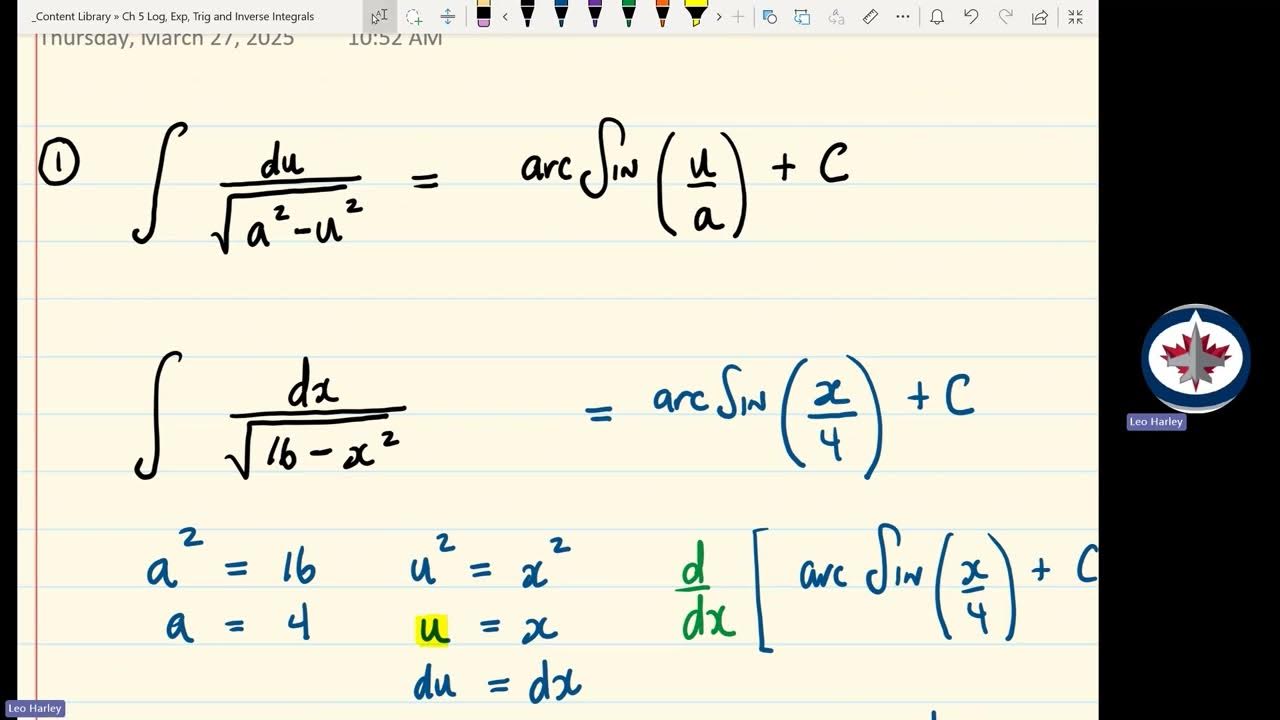 _Content Library » Ch 5 Log, Exp, Trig and Inverse Integrals
Thursday, March 27, 2025 10:52 AM
① ∫ du / √(a² - u²) = arc SIN (u/a) + C
∫ dx / √(16 - x²) = arc SIN (x/4) + C
a² = 16 u² = x² d/dx [ arc SIN (x/4) + C
a = 4 u = x
du = dx
Leo Harley
Leo Harley